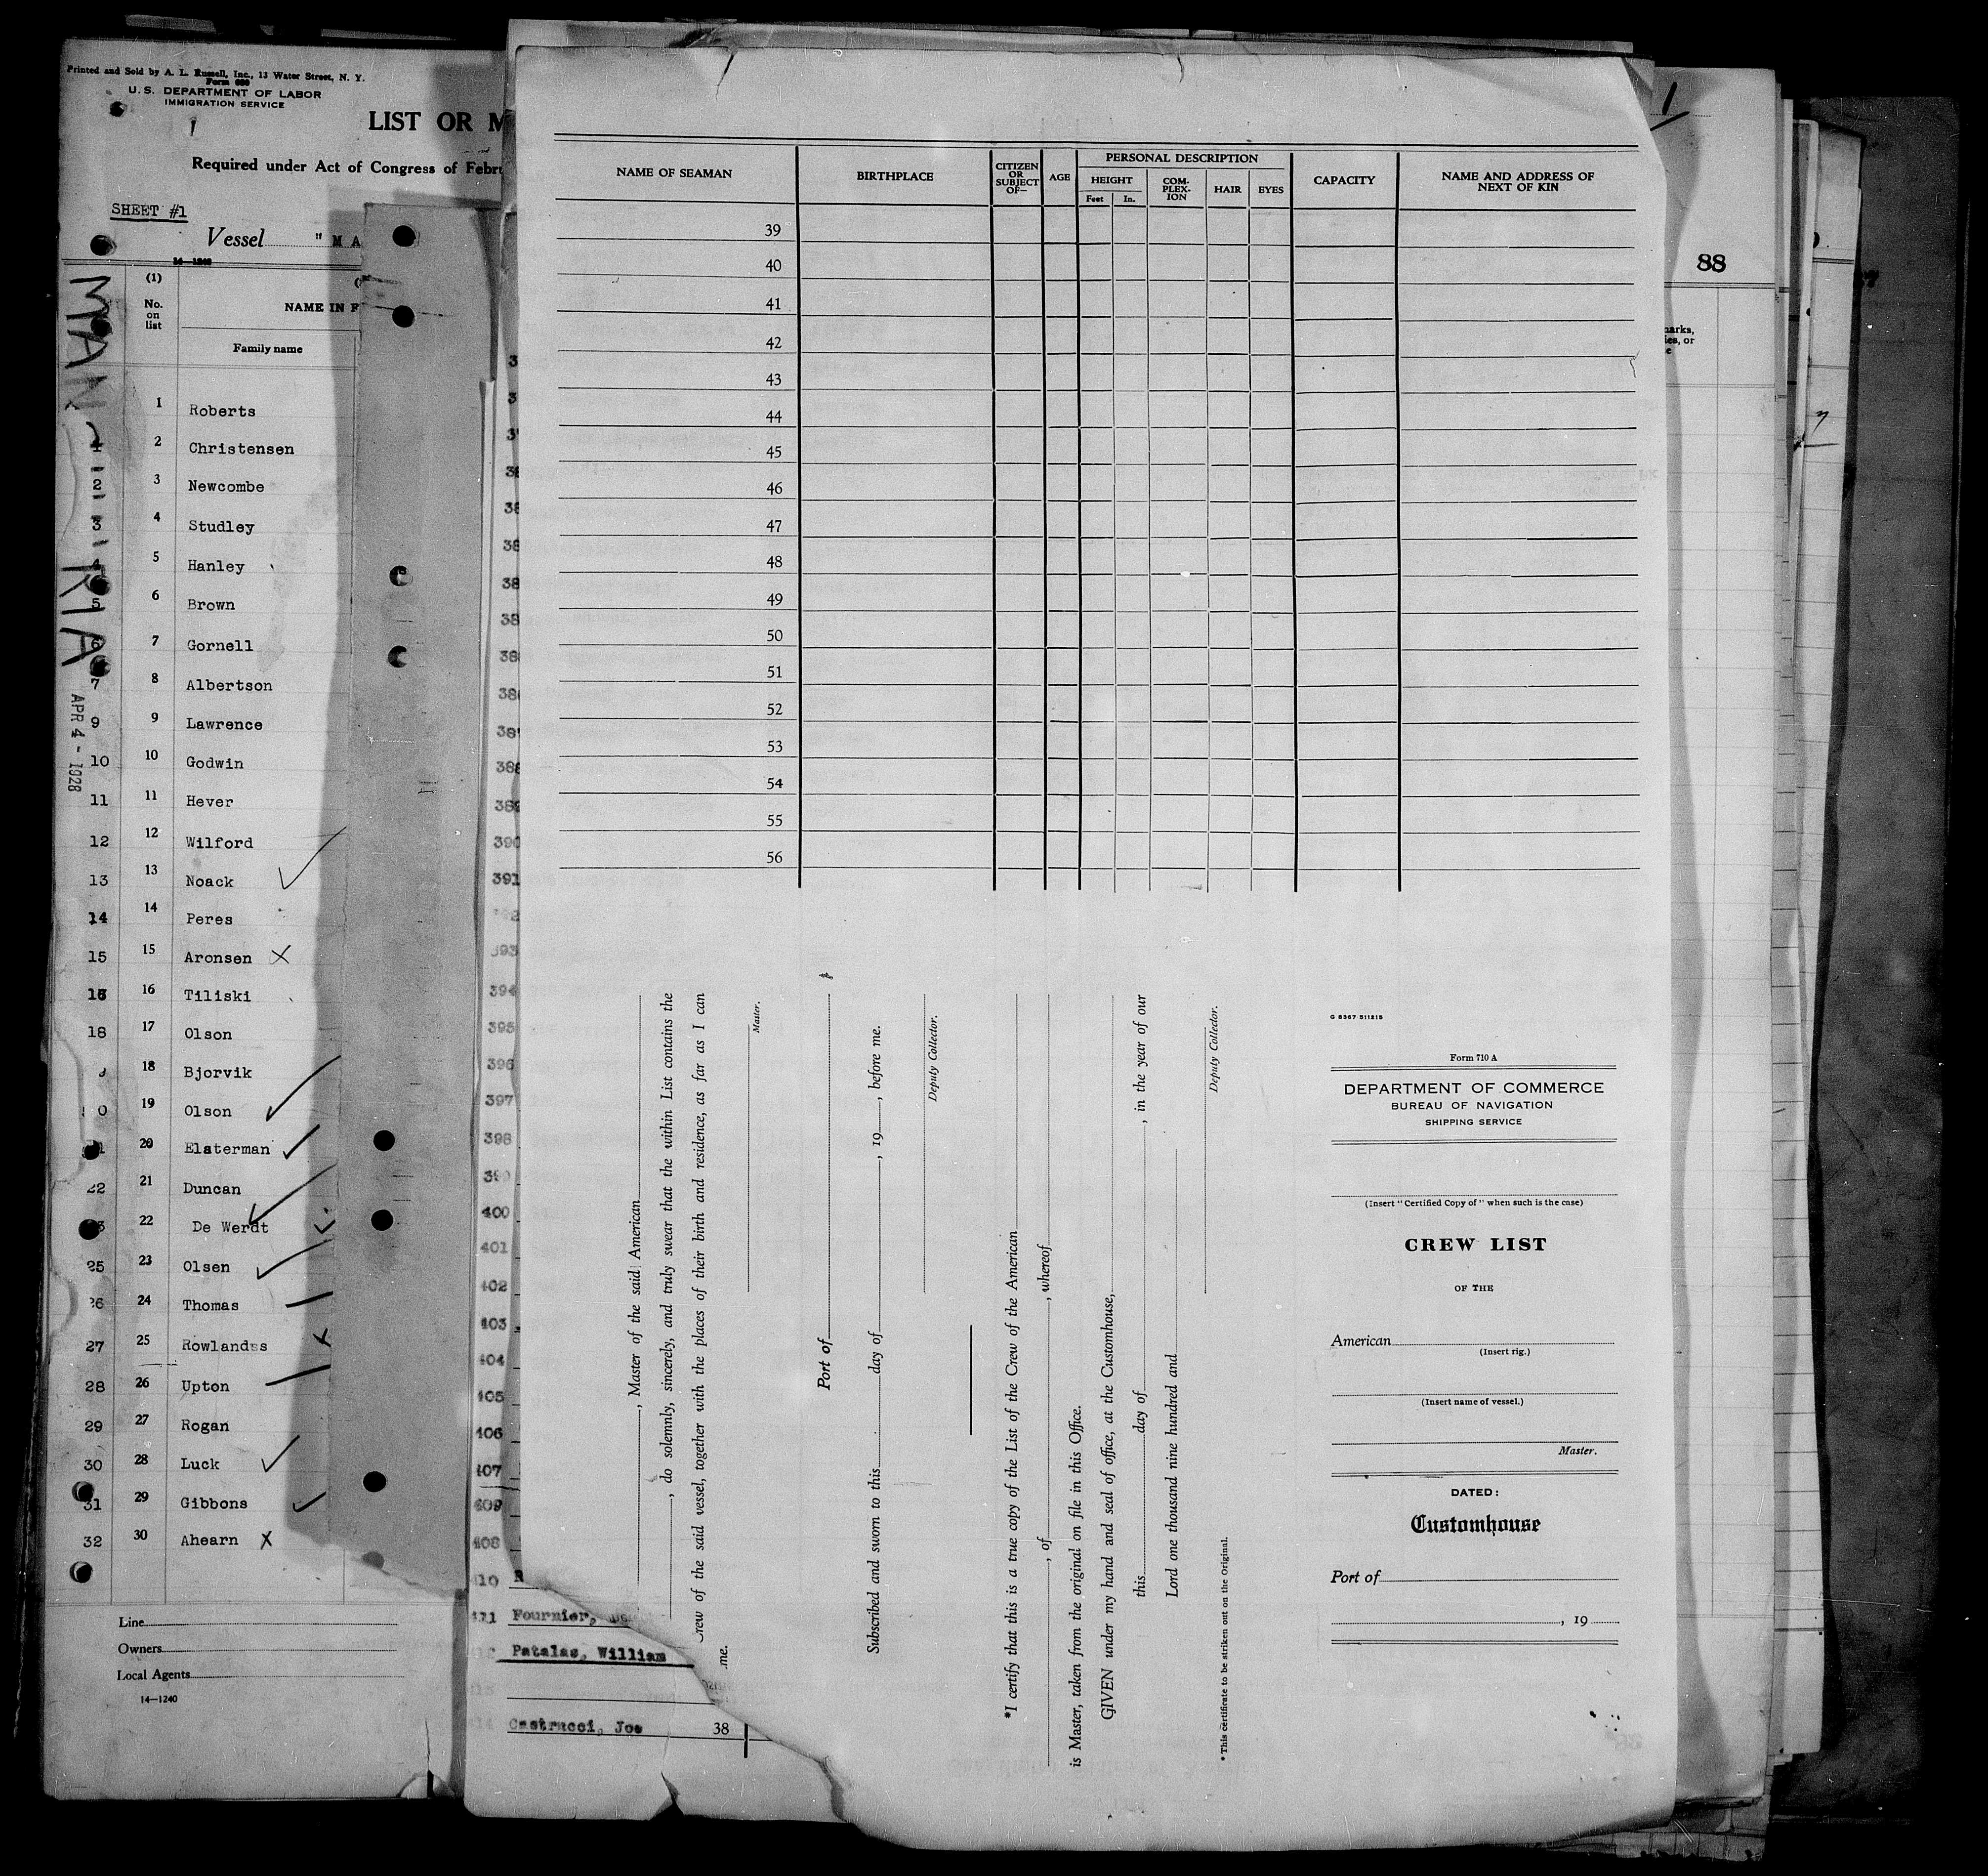 Printed and Sold by A. L. Russell, Inc., 13 Water Street, N. Y.
Form 680
U. S. DEPARTMENT OF LABOR
IMMIGRATION SERVICE
LIST OR M
Required under Act of Congress of Febru
SHEET #1
Vessel " M A
14—1240
(1)
No.
on
list
NAME IN F
Family name
MAN
RIA
APR 4 - 1928
1 Roberts
1 2 Christensen
2 3 Newcombe
3 4 Studley
4 5 Hanley
5 6 Brown
6 7 Gornell
7 8 Albertson
9 9 Lawrence
10 10 Godwin
11 11 Hever
12 12 Wilford
13 13 Noack
14 14 Peres
15 15 Aronsen X
16 Tiliski
18 17 Olson
18 Bjorvik
19 Olson
20 Elsterman
22 21 Duncan
22 De Werdt
25 23 Olsen
26 24 Thomas
27 25 Rowlands
28 26 Upton
29 27 Rogan
30 28 Luck
31 29 Gibbons
32 30 Ahearn X
Line
Owners
Local Agents
14—1240
389
390
391
393
394
395
396
397
398
399
400
401
402
403
404
405
406
407
409
408
410
Fournier,
Patalas, William
Castrucci, Joe 38
NAME OF SEAMAN
BIRTHPLACE
CITIZEN
OR
SUBJECT
OF—
AGE
PERSONAL DESCRIPTION
HEIGHT
Feet In.
COM-
PLEX-
ION
HAIR
EYES
CAPACITY
NAME AND ADDRESS OF
NEXT OF KIN
39
40
41
42
43
44
45
46
47
48
49
50
51
52
53
54
55
56
, Master of the said American
, do solemnly, sincerely, and truly swear that the within List contains the
Crew of the said vessel, together with the places of their birth and residence, as far as I can
me.
Master.
Port of
Subscribed and sworn to this day of , 19 , before me.
Deputy Collector.
*I certify that this is a true copy of the List of the Crew of the American
, of , whereof
is Master, taken from the original on file in this Office.
GIVEN under my hand and seal of office, at the Customhouse,
this day of , in the year of our
Lord one thousand nine hundred and
Deputy Collector.
*This certificate to be striken out on the Original.
G 8367 511215
Form 710 A
DEPARTMENT OF COMMERCE
BUREAU OF NAVIGATION
SHIPPING SERVICE
(Insert "Certified Copy of" when such is the case)
CREW LIST
OF THE
American
(Insert rig.)
(Insert name of vessel.)
Master.
DATED:
Customhouse
Port of
, 19
1
88
marks,
ies, or
e